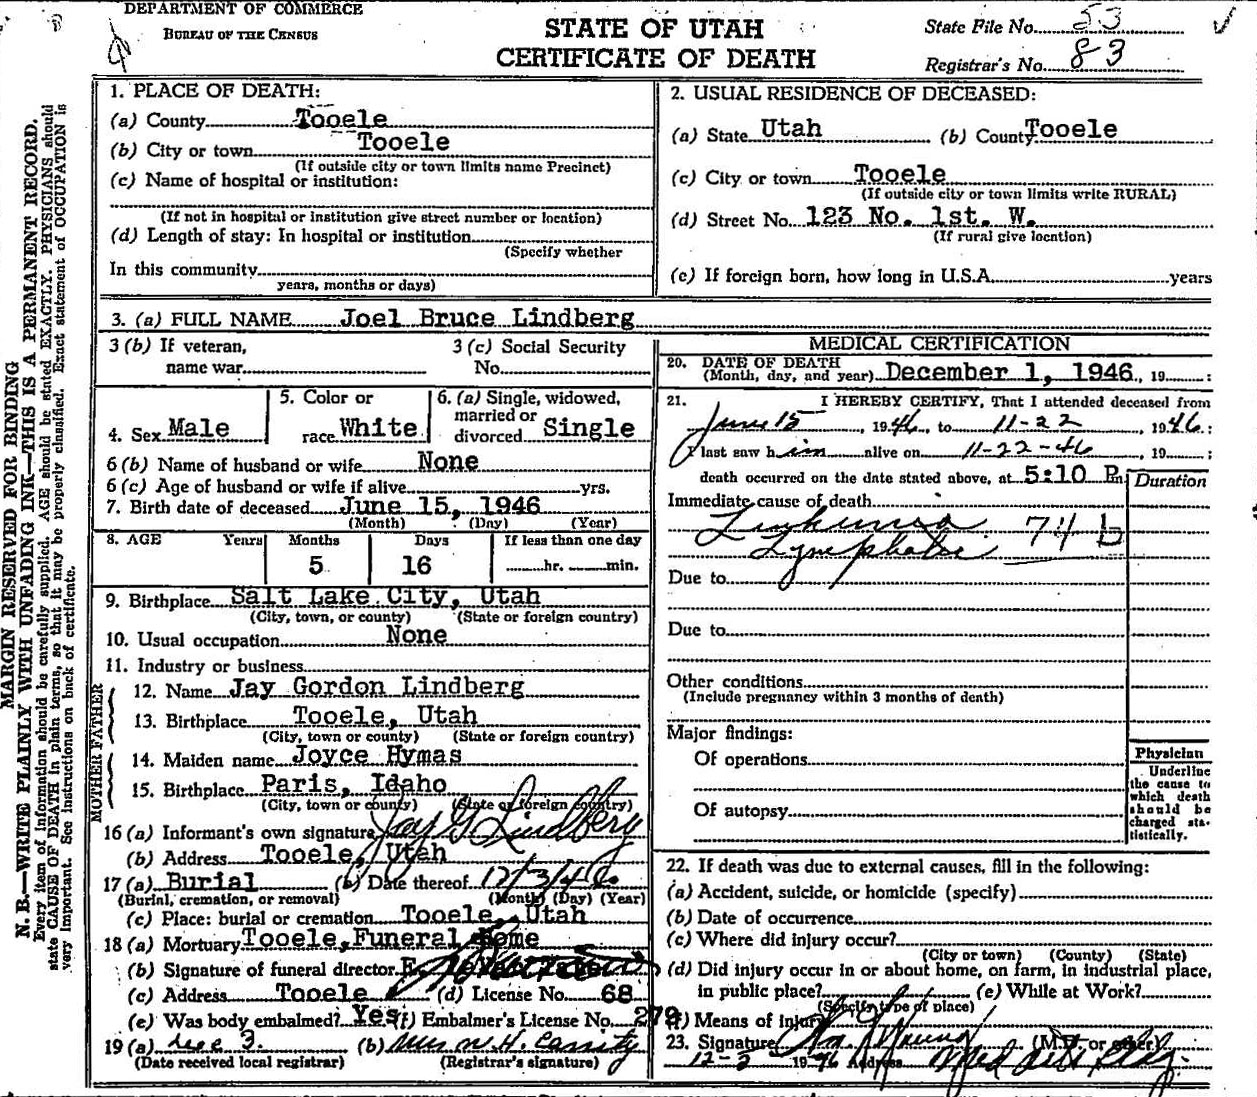 DEPARTMENT OF COMMERCE
BUREAU OF THE CENSUS
STATE OF UTAH
CERTIFICATE OF DEATH
State File No. 53
Registrar's No. 83
MARGIN RESERVED FOR BINDING
N. B.—WRITE PLAINLY WITH UNFADING INK—THIS IS A PERMANENT RECORD.
Every item of information should be carefully supplied. AGE should be stated EXACTLY. PHYSICIANS should
state CAUSE OF DEATH in plain terms, so that it may be properly classified. Exact statement of OCCUPATION is
very important. See instructions on back of certificate.
1. PLACE OF DEATH:
(a) County Tooele
(b) City or town Tooele
(If outside city or town limits name Precinct)
(c) Name of hospital or institution:
(If not in hospital or institution give street number or location)
(d) Length of stay: In hospital or institution
(Specify whether
In this community
years, months or days)
2. USUAL RESIDENCE OF DECEASED:
(a) State Utah (b) County Tooele
(c) City or town Tooele
(If outside city or town limits write RURAL)
(d) Street No. 123 No. 1st. W.
(If rural give location)
(e) If foreign born, how long in U.S.A. years
3. (a) FULL NAME Joel Bruce Lindberg
3 (b) If veteran, name war
3 (c) Social Security No.
4. Sex Male
5. Color or race White
6. (a) Single, widowed, married or divorced Single
6 (b) Name of husband or wife None
6 (c) Age of husband or wife if alive yrs.
7. Birth date of deceased June 15, 1946
(Month) (Day) (Year)
8. AGE Years Months Days If less than one day
5 16 hr. min.
9. Birthplace Salt Lake City, Utah
(City, town, or county) (State or foreign country)
10. Usual occupation None
11. Industry or business
FATHER
12. Name Jay Gordon Lindberg
13. Birthplace Tooele, Utah
(City, town or county) (State or foreign country)
MOTHER
14. Maiden name Joyce Hymas
15. Birthplace Paris, Idaho
(City, town or county) (State or foreign country)
16 (a) Informant's own signature Jay G. Lindberg
(b) Address Tooele, Utah
17 (a) Burial (b) Date thereof 12/3/46
(Burial, cremation, or removal) (Month) (Day) (Year)
(c) Place: burial or cremation Tooele, Utah
18 (a) Mortuary Tooele Funeral Home
(b) Signature of funeral director
(c) Address Tooele (d) License No. 68
(e) Was body embalmed? Yes (f) Embalmer's License No. 279
19 (a) Dec 3. (b) Mrs W. H. Cassity
(Date received local registrar) (Registrar's signature)
MEDICAL CERTIFICATION
20. DATE OF DEATH
(Month, day, and year) December 1, 1946, 19 :
21. I HEREBY CERTIFY, That I attended deceased from
June 15, 1946, to 11-22 1946:
I last saw him alive on 11-22-46, 19 ;
death occurred on the date stated above, at 5:10 Pm
Duration
Immediate cause of death
Leukemia 74 b
Lymphatic
Due to
Due to
Other conditions
(Include pregnancy within 3 months of death)
Major findings:
Of operations
Of autopsy
Physician
Underline
the cause to
which death
should be
charged sta-
tistically.
22. If death was due to external causes, fill in the following:
(a) Accident, suicide, or homicide (specify)
(b) Date of occurrence
(c) Where did injury occur?
(City or town) (County) (State)
(d) Did injury occur in or about home, on farm, in industrial place,
in public place? (e) While at Work?
(Specify type of place)
(f) Means of injury
23. Signature (M.D. or other)
12-2 1946 Address Med Arts Bldg.